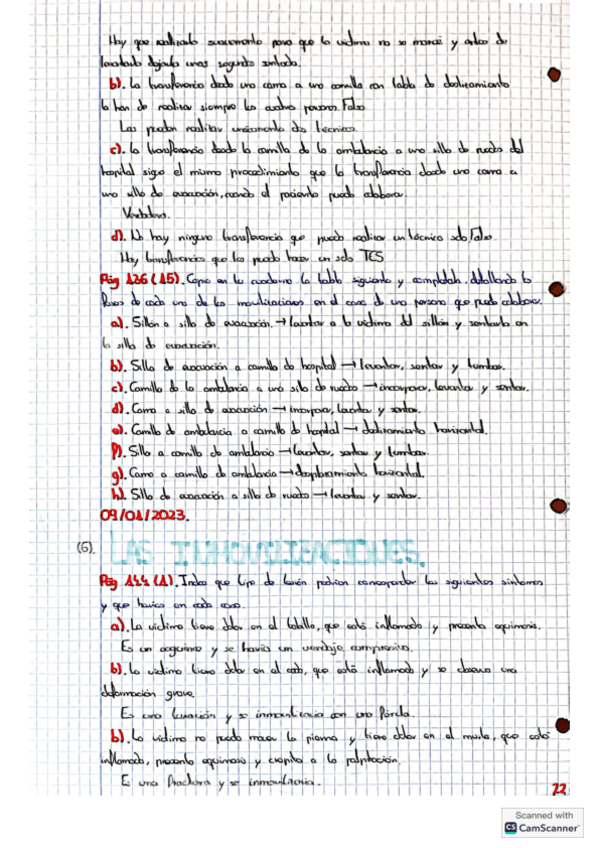 Hay que realizarlo suavemente para que la víctima no se maree y antes de
levantarlo dejarlo unos segundos sentado.
b). La transferencia desde una cama a una camilla con tabla de deslizamiento
la han de realizar siempre las cuatro personas. Falso
Las pueden realizar únicamente dos técnicos.
c). La transferencia desde la camilla de la ambulancia a una silla de ruedas del
hospital sigue el mismo procedimiento que la transferencia desde una cama a
una silla de evacuación, cuando el paciente puede colaborar.
Verdadero.
d). No hay ninguna transferencia que pueda realizar un técnico solo. Falso
Hay transferencias que las puede hacer un solo TES
Pág 136 (15). Copia en tu cuaderno la tabla siguiente y complétala, detallando las
fases de cada una de las movilizaciones en el caso de una persona que puede colaborar.
a). Sillón a silla de evacuación. → levantar a la víctima del sillón y sentarla en
la silla de evacuación.
b). Silla de evacuación a camilla de hospital → levantar, sentar y tumbar.
c). Camilla de la ambulancia a una silla de ruedas → incorporar, levantar y sentar.
d). Cama a silla de evacuación → incorporar, levantar y sentar.
e). Camilla de ambulancia a camilla de hospital → deslizamiento horizontal.
f). Silla a camilla de ambulancia → levantar, sentar y tumbar.
g). Cama a camilla de ambulancia → desplazamiento horizontal.
h). Silla de evacuación a silla de ruedas → levantar y sentar.
09/01/2023.
(6). LAS INMOVILIZACIONES.
Pág 144 (1). Indica que tipo de lesión podrían corresponder los siguientes síntomas
y que harías en cada caso.
a). La víctima tiene dolor en el tobillo, que está inflamado y presenta equimosis.
Es un esguince y se haría un vendaje compresivo.
b). La víctima tiene dolor en el codo, que está inflamado y se observa una
deformación grave.
Es una luxación y se inmovilizaría con una férula.
b). La víctima no puede mover la pierna y tiene dolor en el muslo, que está
inflamado, presenta equimosis y crepita a la palpitación.
Es una fractura y se inmovilizaría.
22
Scanned with
CS CamScanner